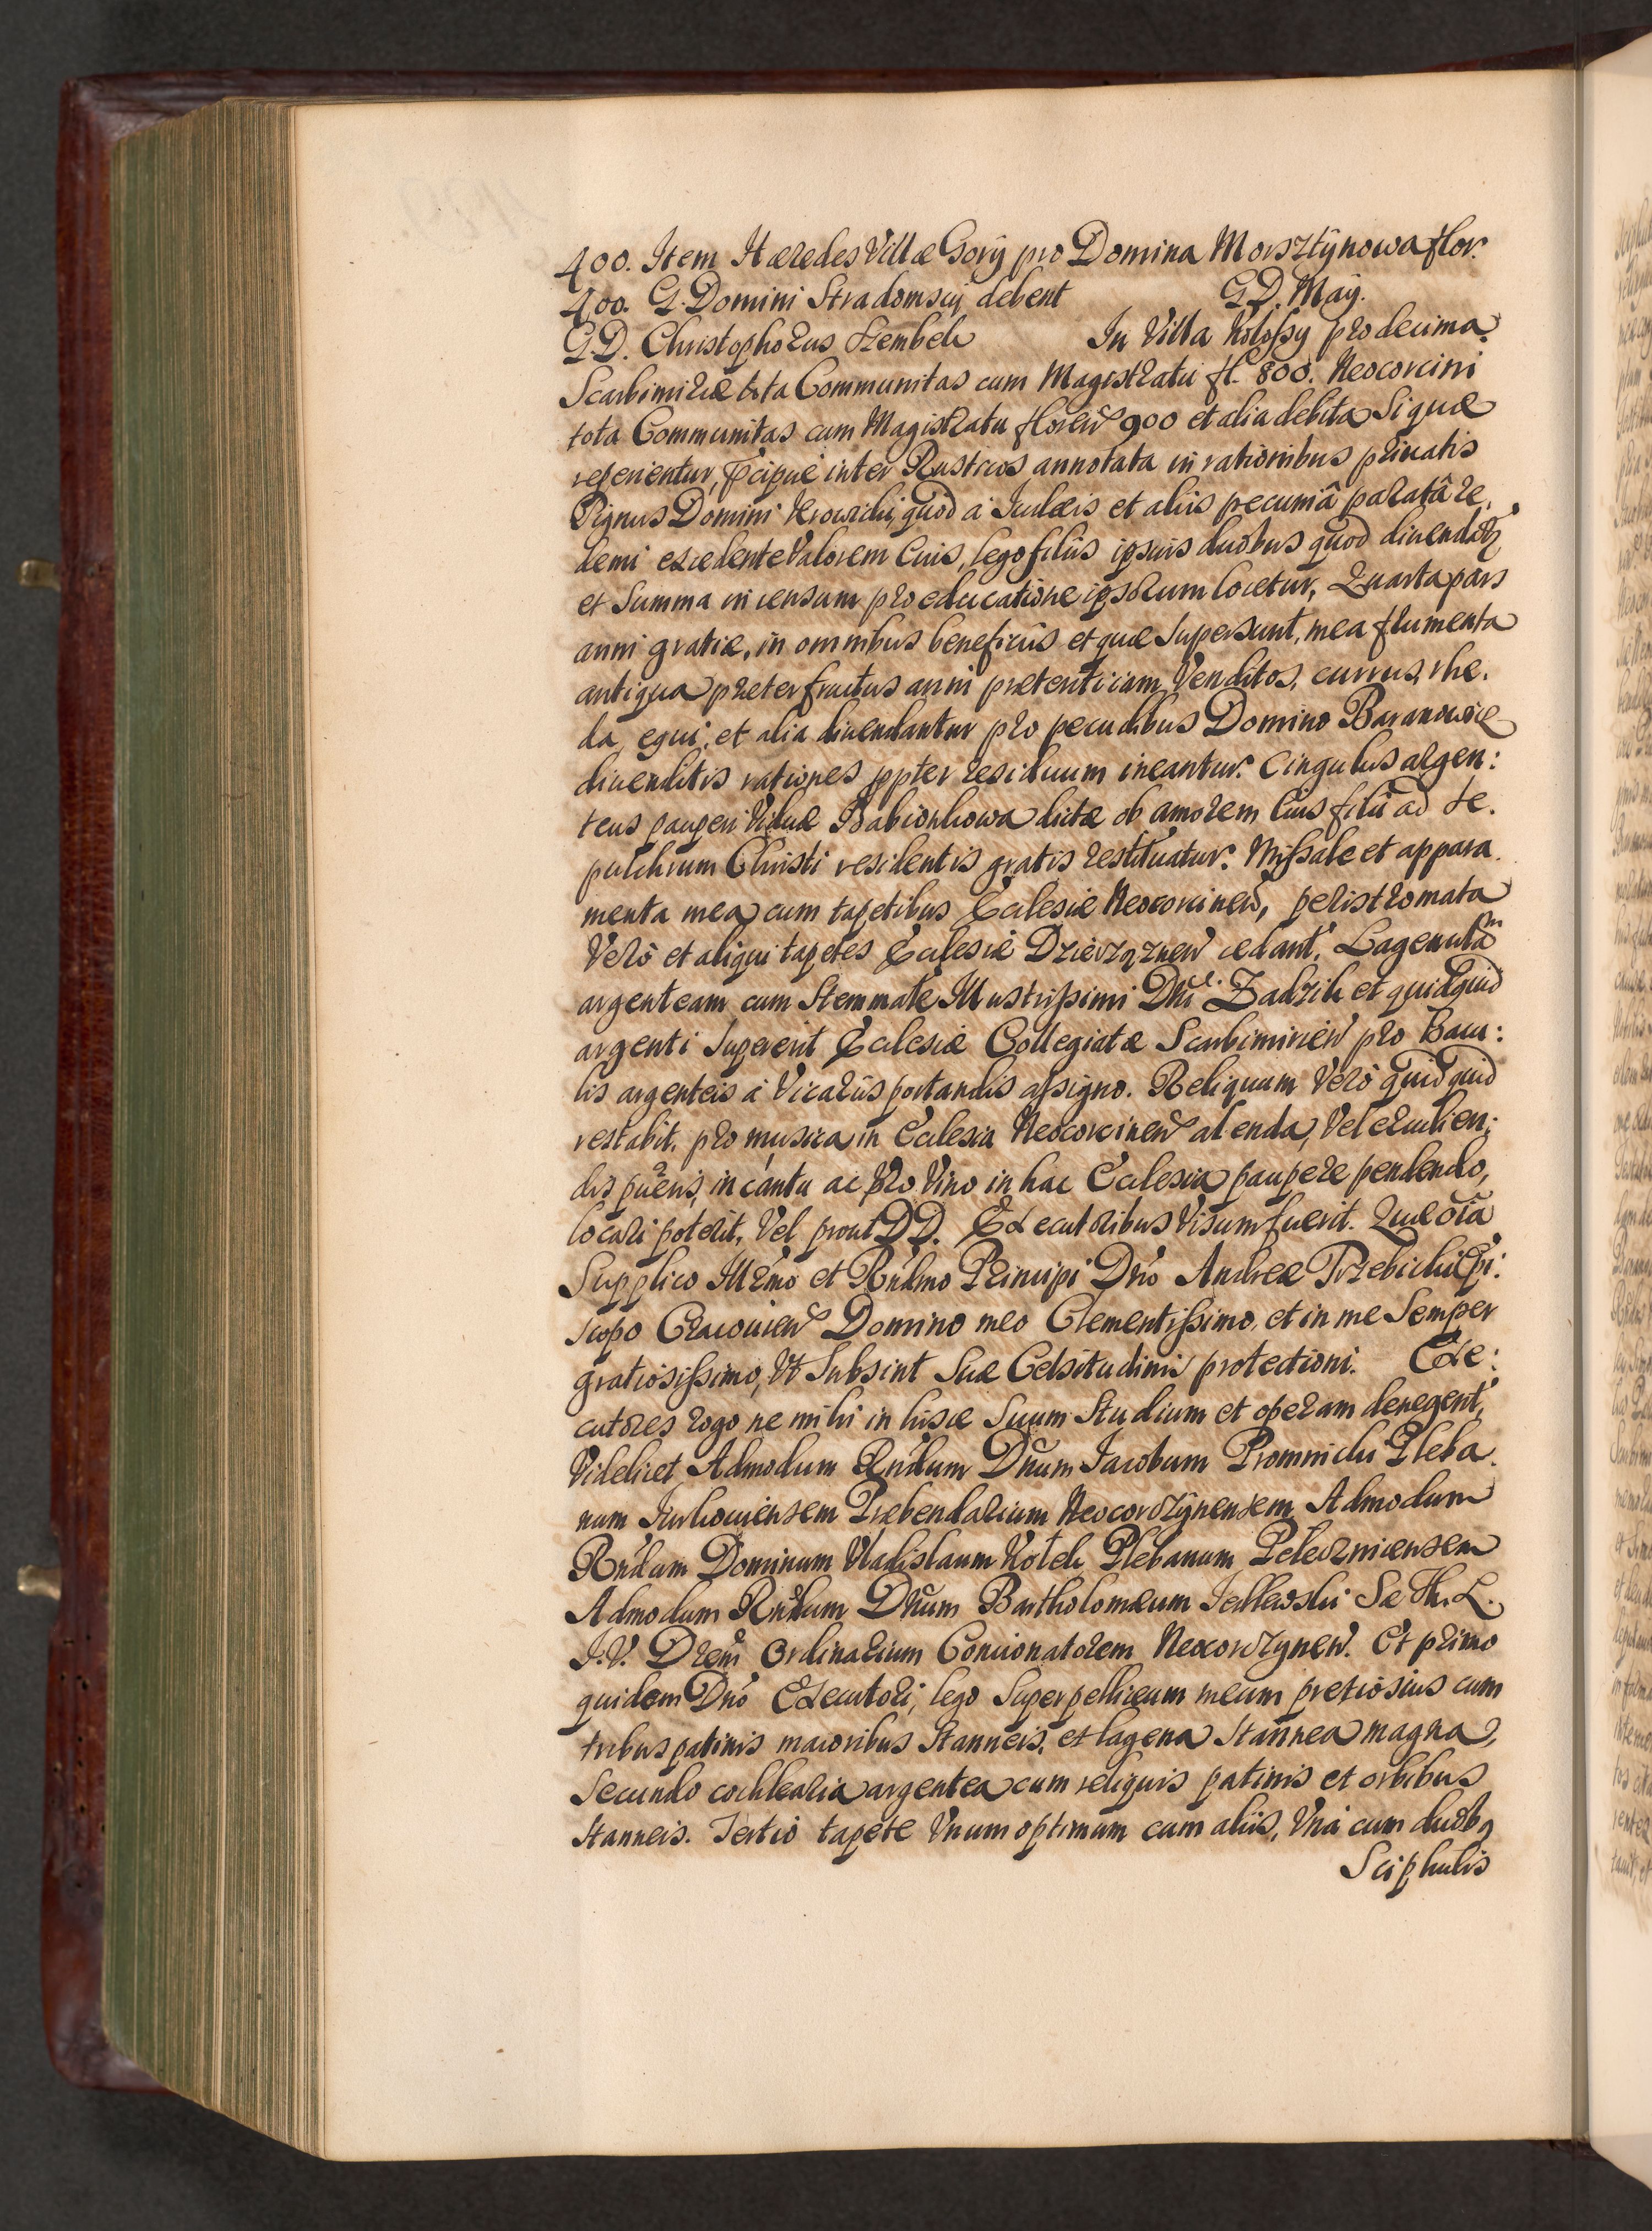 400. Item Hæredes Villæ Gorÿ pro Domina Morsztÿnowa flor.
400. G. Domini Stradomscÿ debent G D. Maÿ.
G.D. Christophorus Szembek In Villa Kolossy pro decima.
Scarbimiriæ tota Communitas cum Magistratu fl. 800. Neocorcini
tota Communitas cum Magistratu floren 900 et alia debita Si quæ
reperientur, p̃cipuè inter Rusticos annotata in rationibus priuatis
Pignus Domini quod à Iudæis et aliis pecuniâ paratâ re,
demi excedente Valorem Eius, lego filiis ipsius duobus quod diuendatʒ
et Summa in censum pro educatione ipsorum locetur, Quarta pars
anni gratiæ, in omnibus beneficiis et quæ Supersunt, mea frumenta
antiqua præter fructus anni præsentis iam Venditos, currus, rhe.
da, equi, et alia diuendantur pro pecudibus Domino Baranowicz
diuenditis rationes ppter residuum ineantur. Cingulus argen:
teus pauperi Viduæ Babionkowa dictæ ob amorem Eius filii ad se.
pulchrum Christi residentis gratis restituatur. Missale et appara.
menta mea cum tapetibus Ecclesiæ Neocorcinen, peristromata
Verò et aliqui tapetes Ecclesiæ Dzierząznen cedant. Lagenulam
argenteam cum Stemmate Illustrissimi Dni Zadzik et quidquid
argenti Supererit Ecclesiæ Collegiatæ Scarbimirien pro Bacu:
lis argenteis à Vicariis portandis assigno. Reliquum Verò quidquid
restabit, pro musica in Ecclesia Neocorcinen alenda, Vel erudien:
dis pueris, in cantu ac pro Vino in hac Ecclesia paupere pendendo,
locari poterit, Vel prout DD. Executoribus Visum fuerit. Quæ oĩa
Supplico Illr̃mo et Rnd̃mo Principi Dnõ Andreæ Trzebicki Epi:
scopo Cracouien Domino meo Clementissimo, et in me Semper
gratiosissimo, Vt Subsint Suæ Celsitudinis protectioni. Exe:
cutores rogo ne mihi in hisce Suum Studium et operam denegent,
Videlicet Admodum Rndum Dnum Iacobum Promnicki Pleba.
num Præbendarium Neocorczÿnensem Admodum
Rndum Dominum Vladislaum Kotek Plebanum Pelecznicensem
Admodum Rndum Dnum Bartholomæum Iedlewski Sæ Th. L.
I.V. Drem Ordinarium Concionatorem Neocorczynen. Et primo
quidem Dnõ Executori, lego Superpelliceum meum pretiosius cum
tribus patinis maioribus Stanneis, et lagena Stannea magna,
Secundo cochlearia argentea cum reliquis patinis et orbibus
Stanneis. Tertiò tapete Vnum optimum cum aliis, Vnà cum duobꝫ
Sciphulis